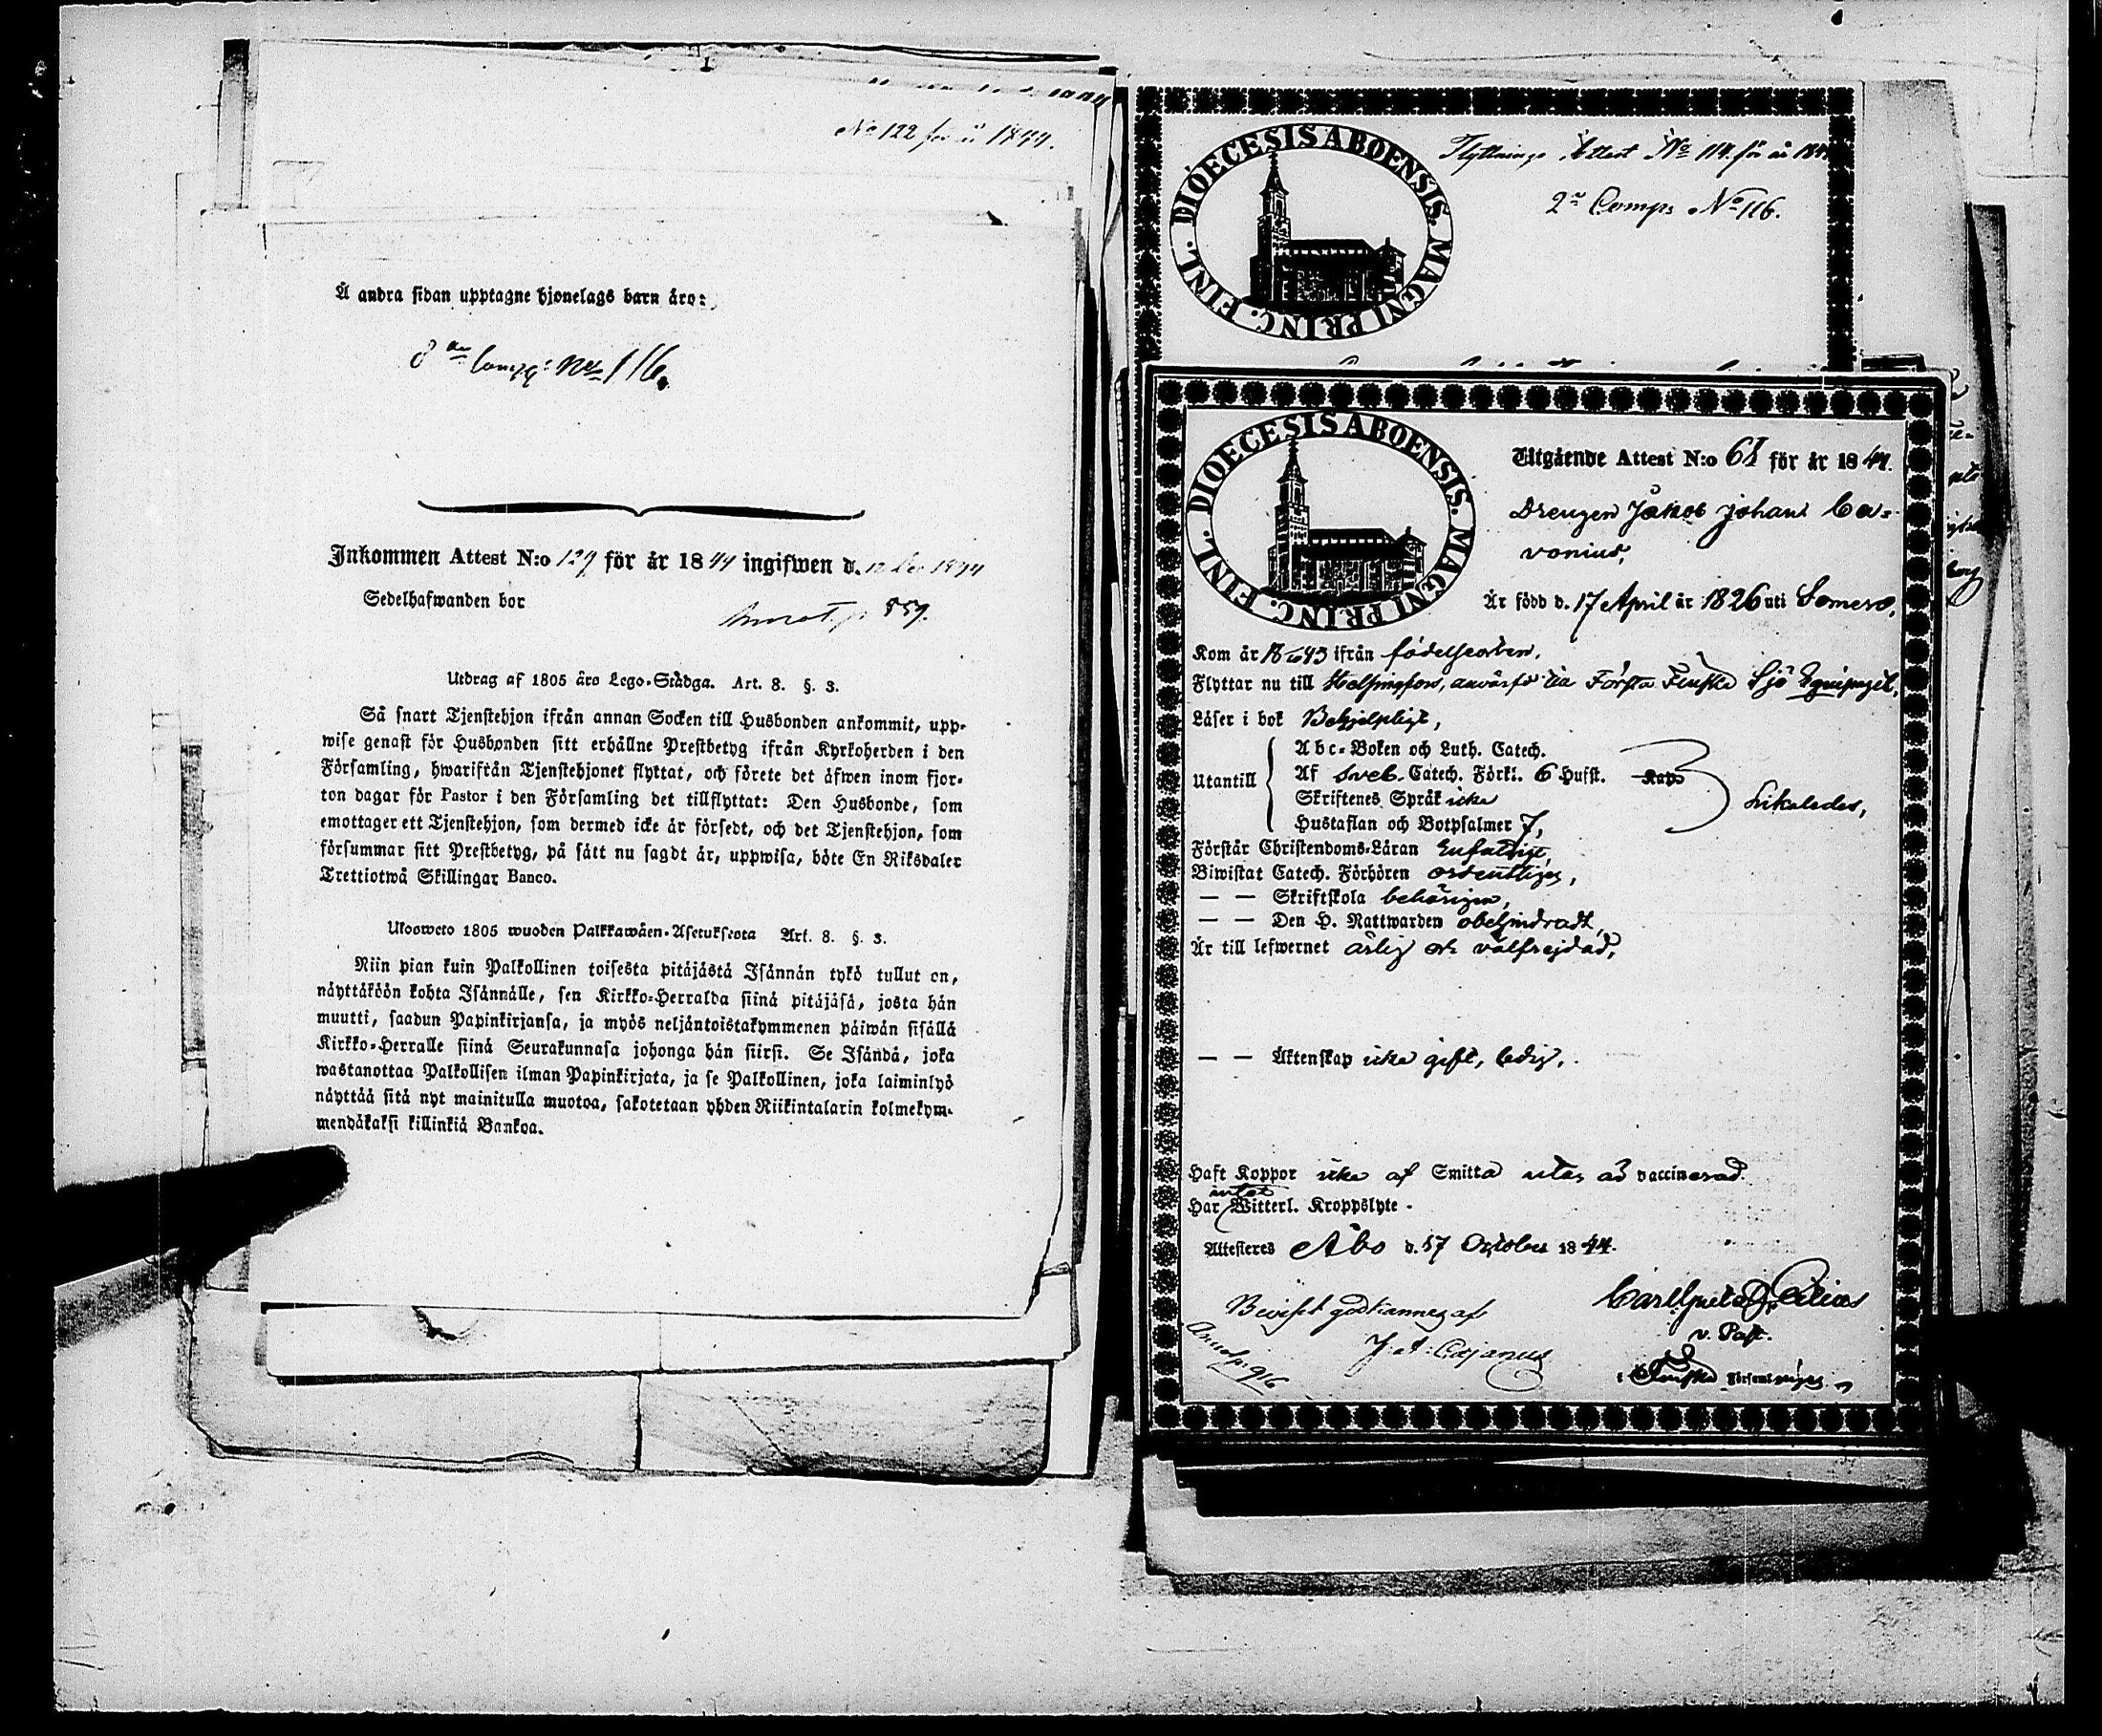 No 122 för år 1844.
Å andra sidan upptagne hjonelags barn äro:
8de Comp: No 116.
Inkommen Attest N:o 129 för år 1844 ingifwen d. 12 Dec 1844
Sedelhafwanden bor
Annot. p 559.
Utdrag af 1805 års Lego-Stadga. Art. 8. §. 3.
Så snart Tjenstehjon ifrån annan Socken till Husbonden ankommit, upp-
wise genast för Husbonden sitt erhållne Prestbetyg ifrån Kyrkoherden i den
Församling, hwarifrån Tjenstehjonet flyttat, och förete det äfwen inom fjor-
ton dagar för Pastor i den Församling det tillflyttat: Den Husbonde, som
emottager ett Tjenstehjon, som dermed icke är försedt, och det Tjenstehjon, som
försummar sitt Prestbetyg, på sätt nu sagdt är, uppwisa, böte En Riksdaler
Trettiotwå Skillingar Banco.
Ulosweto 1805 wuoden Palkkawäen-Asetuksesta Art. 8. §. 3.
Niin pian kuin Palkollinen toisesta pitäjästä Isännän tykö tullut on,
näyttäköön kohta Isännälle, sen Kirkko-Herralda siinä pitäjäsä, josta hän
muutti, saadun Papinkirjansa, ja myös neljäntoistakymmenen päiwän sisällä
Kirkko-Herralle siinä Seurakunnasa johonga hän siirsi. Se Isändä, joka
wastanottaa Palkollisen ilman Papinkirjata, ja se Palkollinen, joka laiminlyö
näyttää sitä nyt mainitulla muotoa, sakotetaan yhden Riikintalarin kolmekym-
mendäkaksi killinkiä Bankoa.
DIOECESIS ABOENSIS. MAGNI PRINC. FINL.
Flyttnings Attest No 114. för år 184
2a Comp. No 116.
DIOECESIS ABOENSIS. MAGNI PRINC. FINL.
Utgående Attest N:o 61 för år 1844.
Drengen Jakob Johans Ca-
vonius,
Är född d. 17 April år 1826 uti Somero,
Kom år 1843 ifrån födelseorten,
Flyttar nu till Helsingfors, anvärfd till Första Finska Sjö Equipaget,
Läser i bok Behjelpligt,
Utantill
Abc-Boken och Luth. Catech.
Af Sveb. Catech. Förkl. 6 Hufst. Kap
Skriftenes Språk icke
Hustaflan och Botpsalmer 7,
Likaledes,
Förstår Christendoms-Läran Enfaldigt,
Biwistat Catech. Förhören ordentligen,
— — Skriftskola behörigen,
— — Den H. Nattwarden obehindradt,
Är till lefwernet ärlig och välfrejdad,
— — Äktenskap icke gift, ledig,
Haft Koppor icke af Smitta utan är vaccinerad.
intet
Har Witterl. Kroppslyte -
Attesteres Åbo d. 17 October 1844.
Beviset godkännes af
v. Past.
Annot p. 916
i Finska Församlingen.